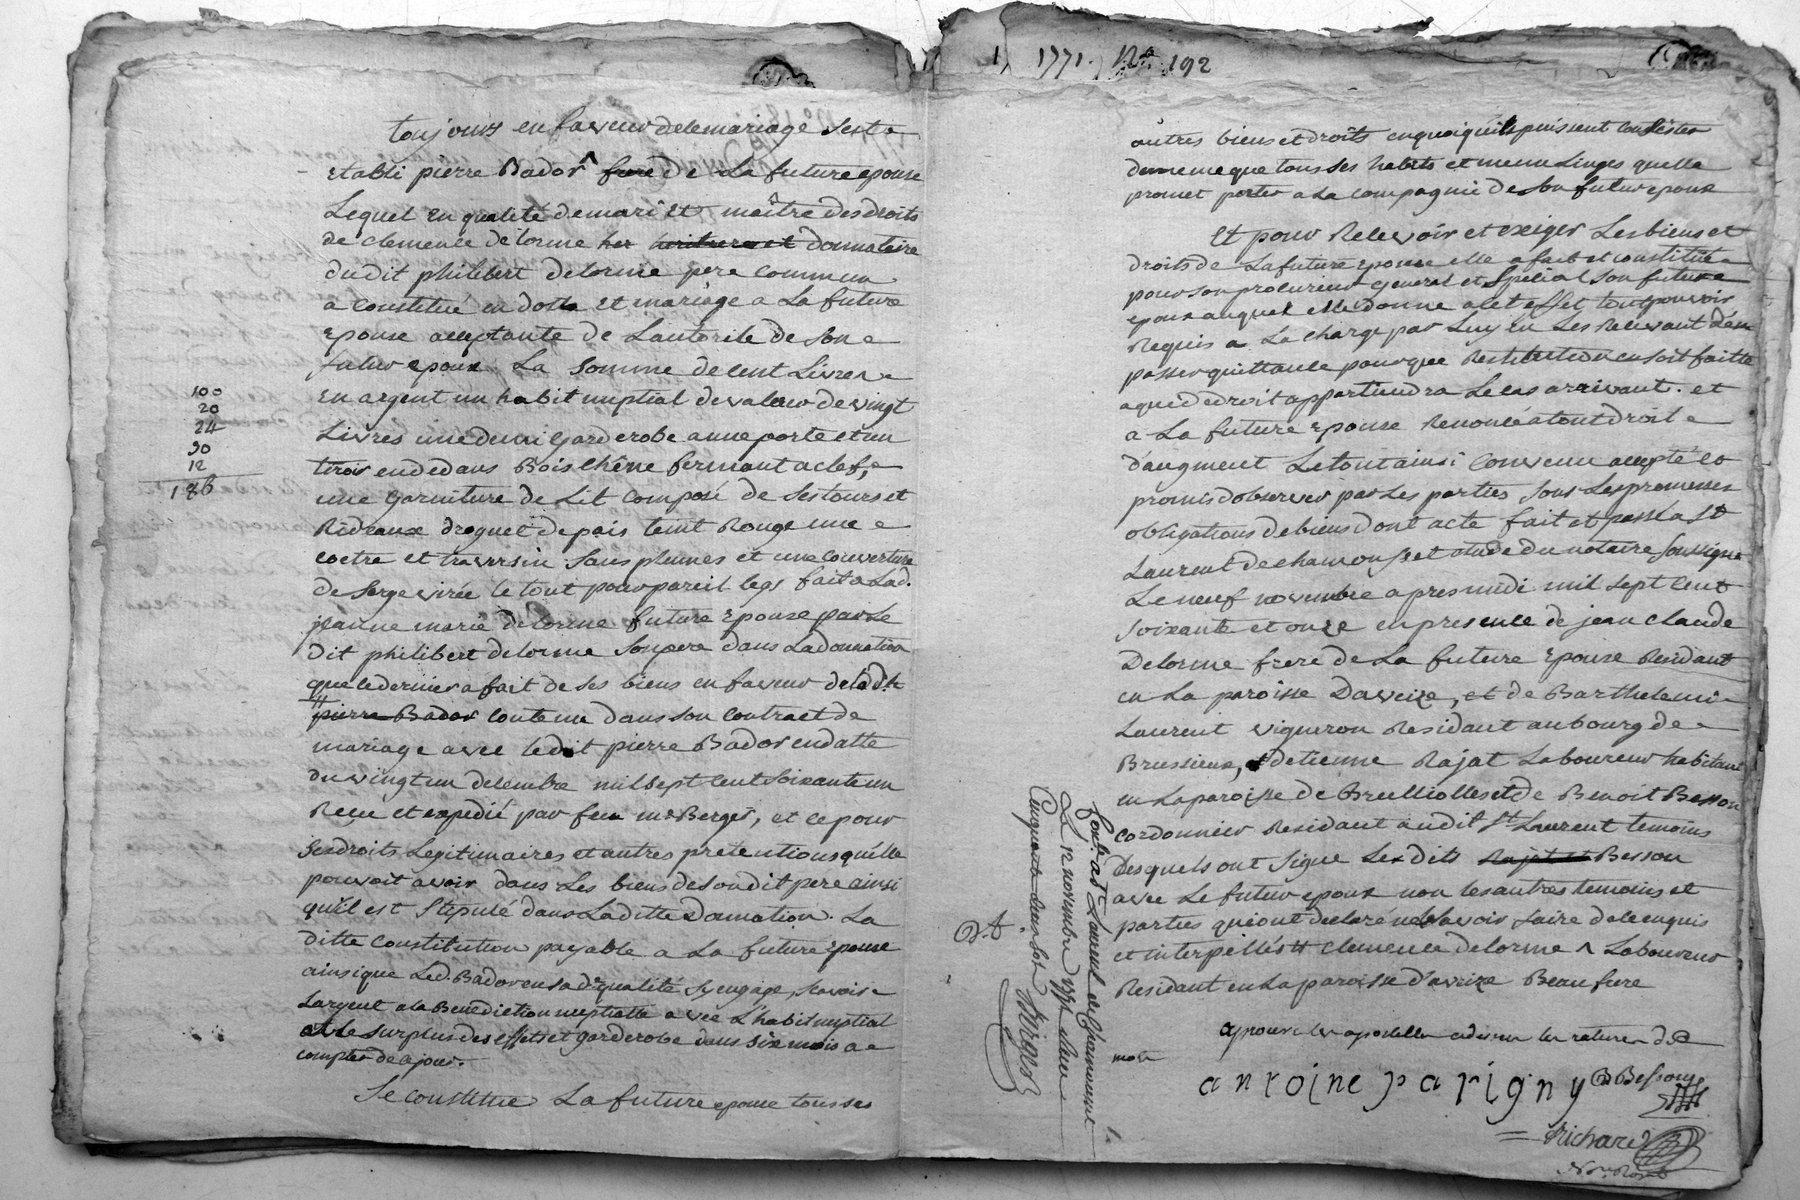 toujours en faveur de le mariage sest
etabli pierre Bador ^ frere de La future epouse
Lequel En qualité de mari Et maître des droits
de clemence delorme her heritiere et donnataire
dudit philibert delorme pere commun
a constitué en dotte et mariage a La future
epouse acceptante de Lautorité de son
futur epoux La somme de cent Livres
En argent un habit nuptial de valeur de vingt
Livres une demi garderobe a une porte et un
tiroir en dedans Bois chêne fermant a clef,
une garniture de Lit composé de ses tours et
Rideaux droguet de pais teint Rouge une
coetre et traversin sans plumes et une couverture
de serge virée le tout pour pareil legs fait a Lad.
jeanne marie delorme future Epouse par Le
dit philibert delorme son pere dans La donnation
que ce dernier a fait de ses biens en faveur de
pierre Bador contenue dans son contract de
mariage avec ledit pierre Bador en datte
du vingt un decembre mil sept cent soixante un
Recu et expedié par feu me Berger, et ce pour
ses droits Legitimaires et autres pretentions qu'elle
pouvoit avoir dans Les biens de son dit pere ainsi
qu'il est stipulé dans La ditte Donnation. La
ditte constitution payable a La future epouse
ainsi que Led. Bador en sa de qualité s'y engage, scavoir
Largent a la Benediction nuptialle avec L'habit nuptial
et le surplus des effets et garderobe dans six mois a
compter de ce jour.
Se constitue La future epouse tous ses
100
20
24
30
12
186
1771. No 192
autres biens et droits en quoi qu'ils puissent consister
de meme que tous ses habits et menu Linges quelle
promet porter a La compagnie de son futur epoux
Et pour Recevoir et exiger Les biens et
droits de La future epouse elle a fait et constitué
pour son procureur general et special son future
epoux auquel elle donne a cet effet tout pouvoir
Requis a La charge par Luy En Les Recevant d'en
passer quittance pour que Restitution en soit faitte
a qui de droit appartiendra Le cas arrivant. et
a La future Epouse Renoncé a tout droit
d'augment Le tout ainsi convenu accepté et
promis d'observer par Les parties sous Les promesses
obligations de biens dont acte fait et passé a St
Laurent de chamousset etude du notaire soussigné
Le neuf novembre apres midi mil sept cent
soixante et onze en presence de jean claude
Delorme frere de La future Epouse Residant
en La paroisse Daveize, et de Barthelemi
Laurent vigneron Residant au bourg de
Brussieux, detienne Rajat Laboureur habitant
en La paroisse de Brulliolles et de Benoit Besson
cordonnier Residant audit St Laurent temoins
Desquels ont signé Lesdits Rajat et Besson
avec Le futur epoux non les autres temoins et
parties qui ont declaré ne scavoir faire de ce enquis
et interpellés # clemence delorme ^ Laboureur
Residant en La paroisse d'aveize Beau frere
antoine parigny B Besson
Richard
Conle at Laurent de Chamousset
Le 12 novembre 1771